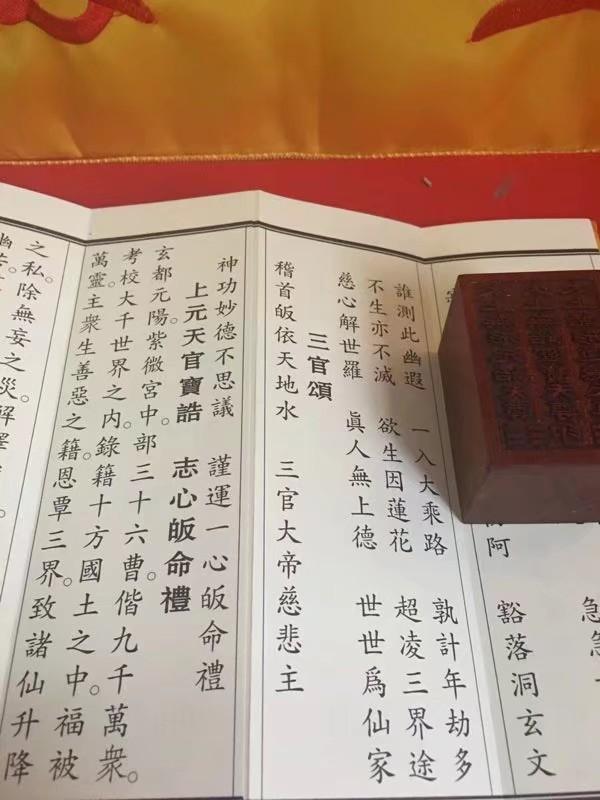 急急
阿 豁落洞玄文
誰測此幽遐 一入大乘路 孰計年劫多
不生亦不滅 欲生因蓮花 超凌三界途
慈心解世羅 眞人無上德 世世爲仙家
三官頌
稽首皈依天地水 三官大帝慈悲主
神功妙德不思議 謹運一心皈命禮
上元天官寶誥 志心皈命禮
玄都元陽紫微宮中。部三十六曹。偕九千萬衆。
考校大千世界之內。錄籍十方國土之中。福被
萬靈。主衆生善惡之籍。恩覃三界。致諸仙升降
之私。除無妄之災。解釋
幽